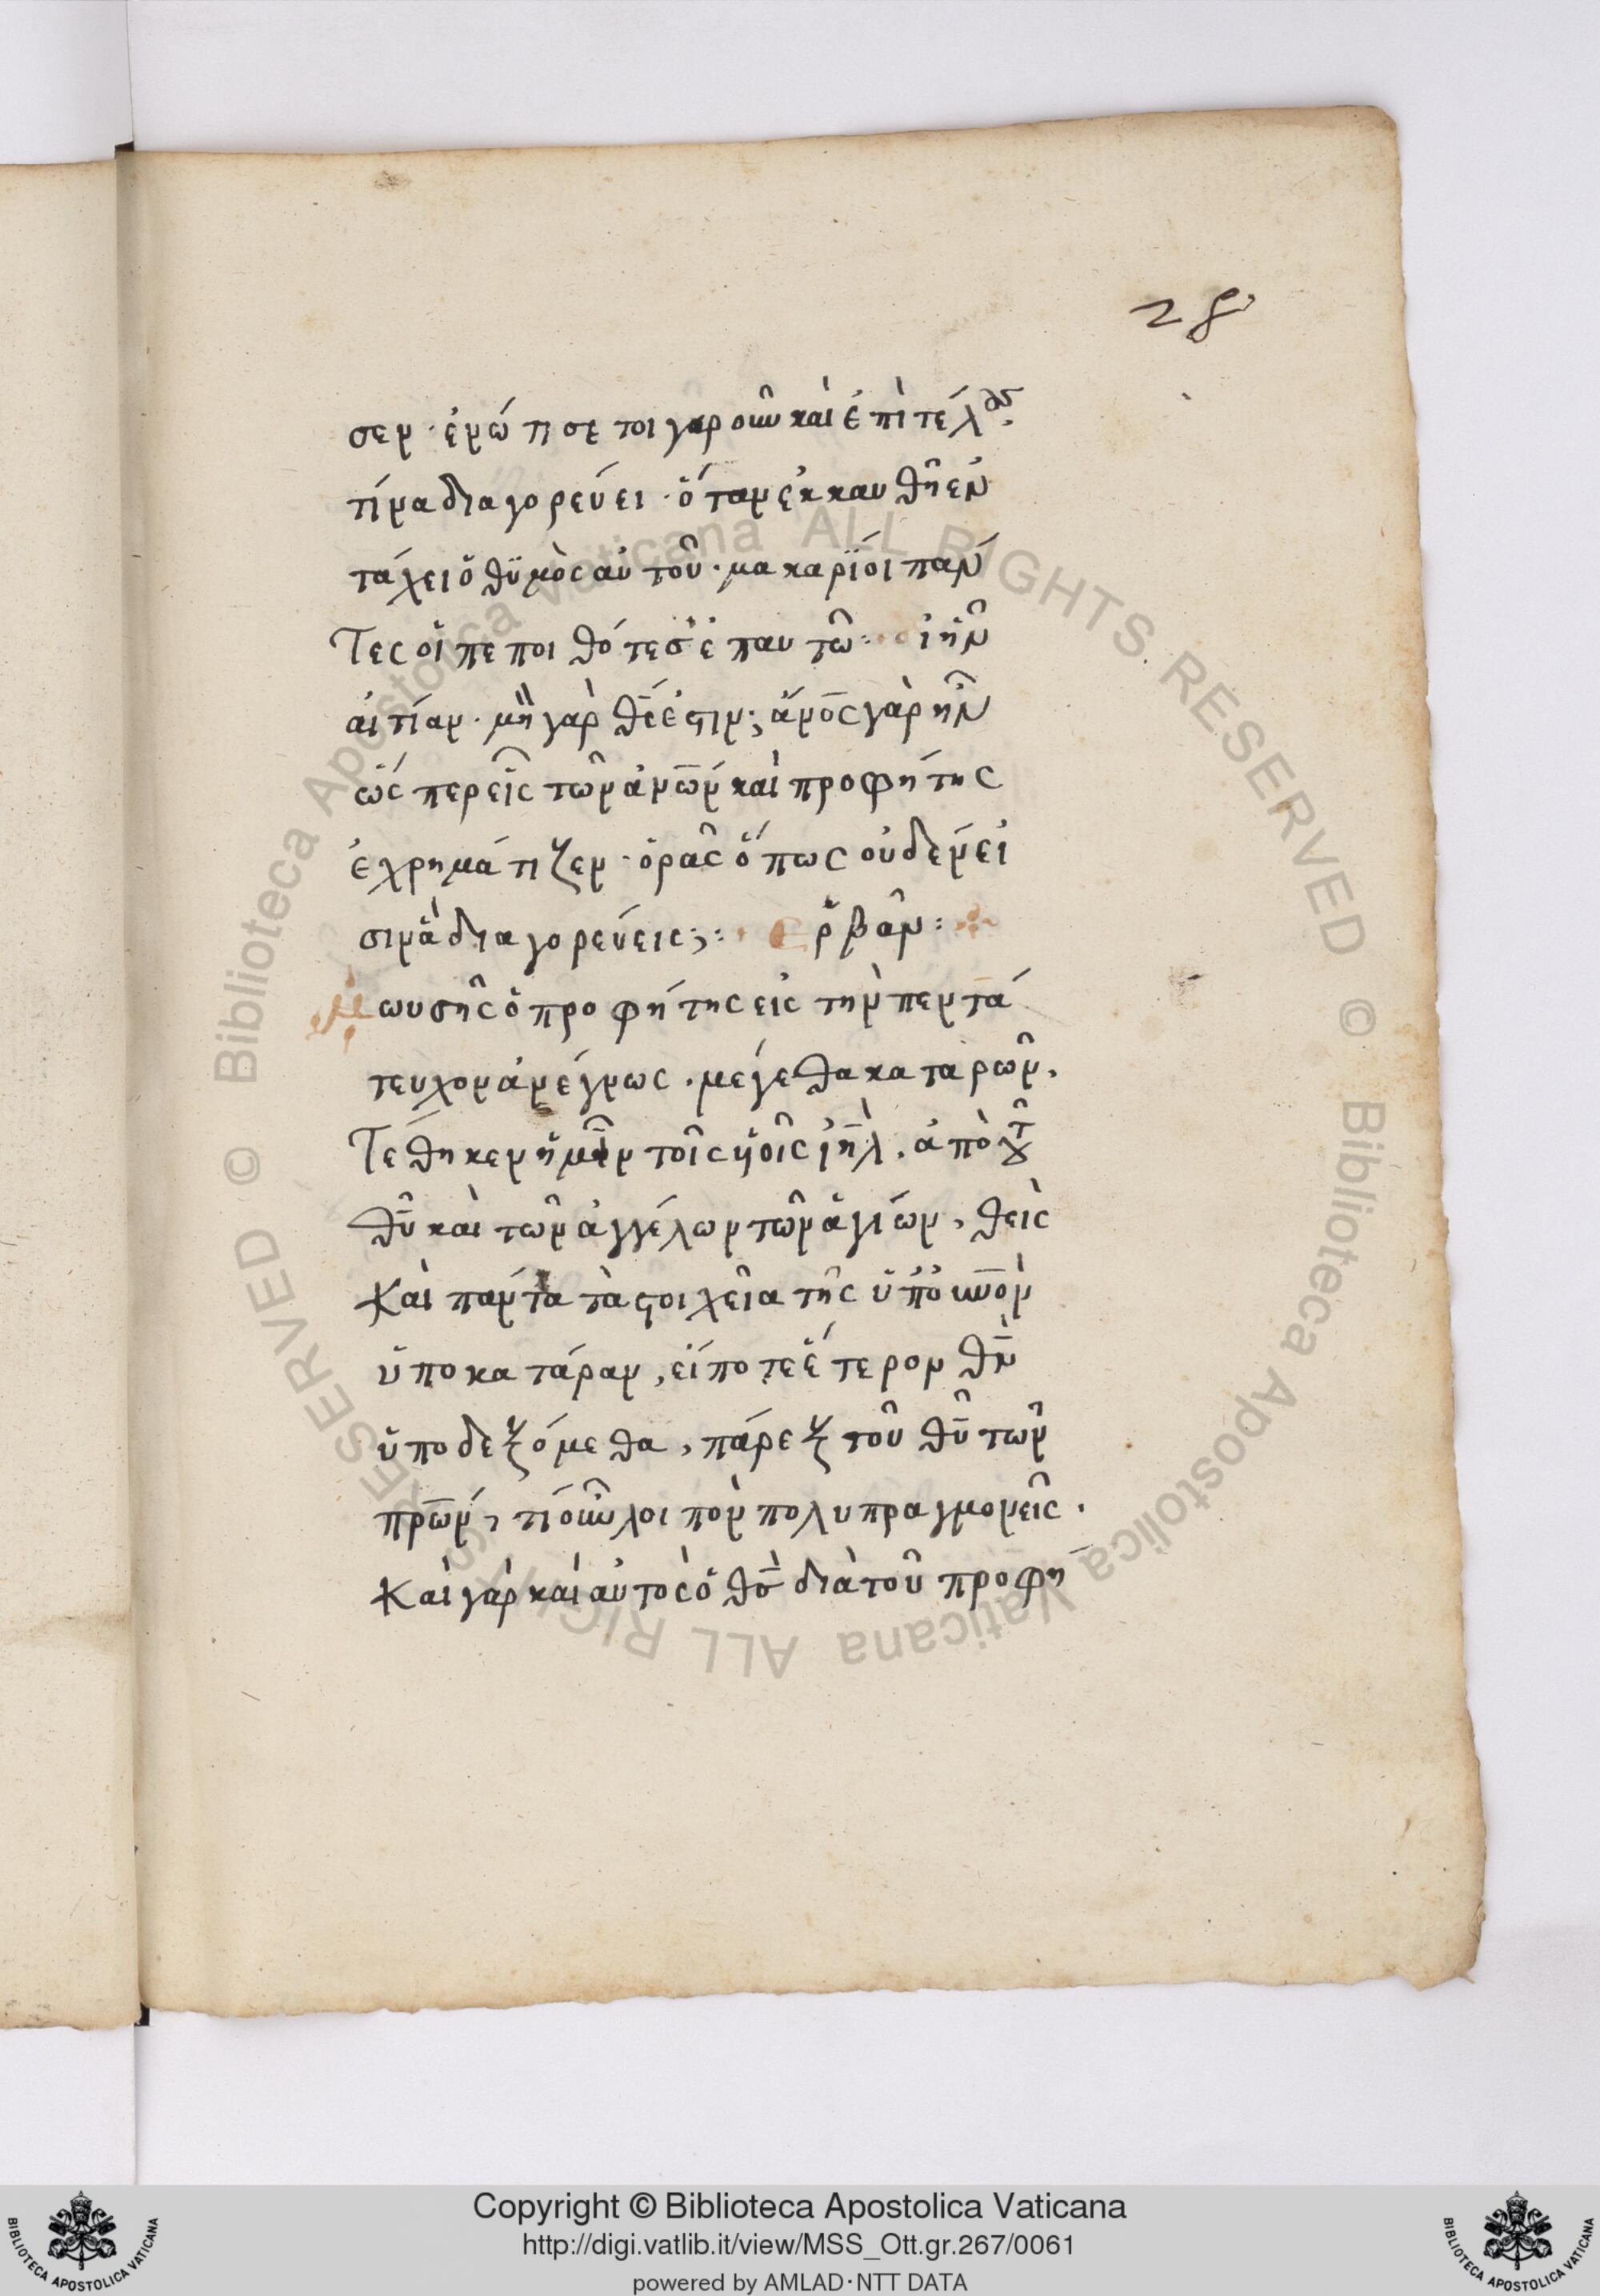 28
σεν · ἐρώτισε τοιγαροῦν καὶ ἐπὶ τέλους
τίνα διαγορεύει · ὅταν ἐκκαυθῆ ἐν
τάχει ὁ θυμὸς αὐτοῦ · μακάριοι πάν
τες οἱ πεποιθότες ἐπ αυτῶ :
αἰτίαν · μὴ γὰρ θς ἐστιν; ἄνος γὰρ ἦν
ὥσπερ εἷς τῶν ἀνων καὶ προφήτης
ἐχρημάτιζεν · ὁρᾶς ὅπως οὐδέν εἰ
σιν ἃ διαγορεύεις; : ρβᾶν :
Μωυσῆς ὁ προφήτης εἰς τὴν πεντά
τευχον ἀνέγνως · μέγεθα καταρῶν,
Τέθηκεν ἡμῖν τοῖς υοῖς ιηλ, ἀπὸ τοῦ
θυ καὶ τῶν ἀγγέλων τῶν ἁγίων, θεὶς
καὶ πάντα τὰ στοιχεῖα τῆς ὑπ οὐνον
ὑπὸ κατάραν, εἴποτε ἕτερον θν
ὑποδεξόμεθα, πάρεξ τοῦ θυ τῶν
πρων, τί οὖν λοιπὸν πολυπραγμονεῖς ·
Καὶ γὰρ καὶ αὐτὸς ὁ θς διὰ τοῦ προφή
Copyright © Biblioteca Apostolica Vaticana
http://digi.vatlib.it/view/MSS_Ott.gr.267/0061
powered by AMLAD·NTT DATA